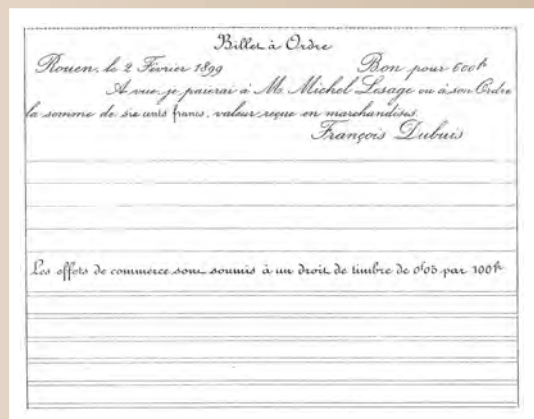 Billet à Ordre
Rouen, le 2 Février 1899 Bon pour 600f
A vue je paierai à Mr Michel Lesage ou à son Ordre
la somme de six cents francs, valeur reçue en marchandises.
François Dubuis
Les effets de commerce sont soumis à un droit de timbre de 0f05 par 100f